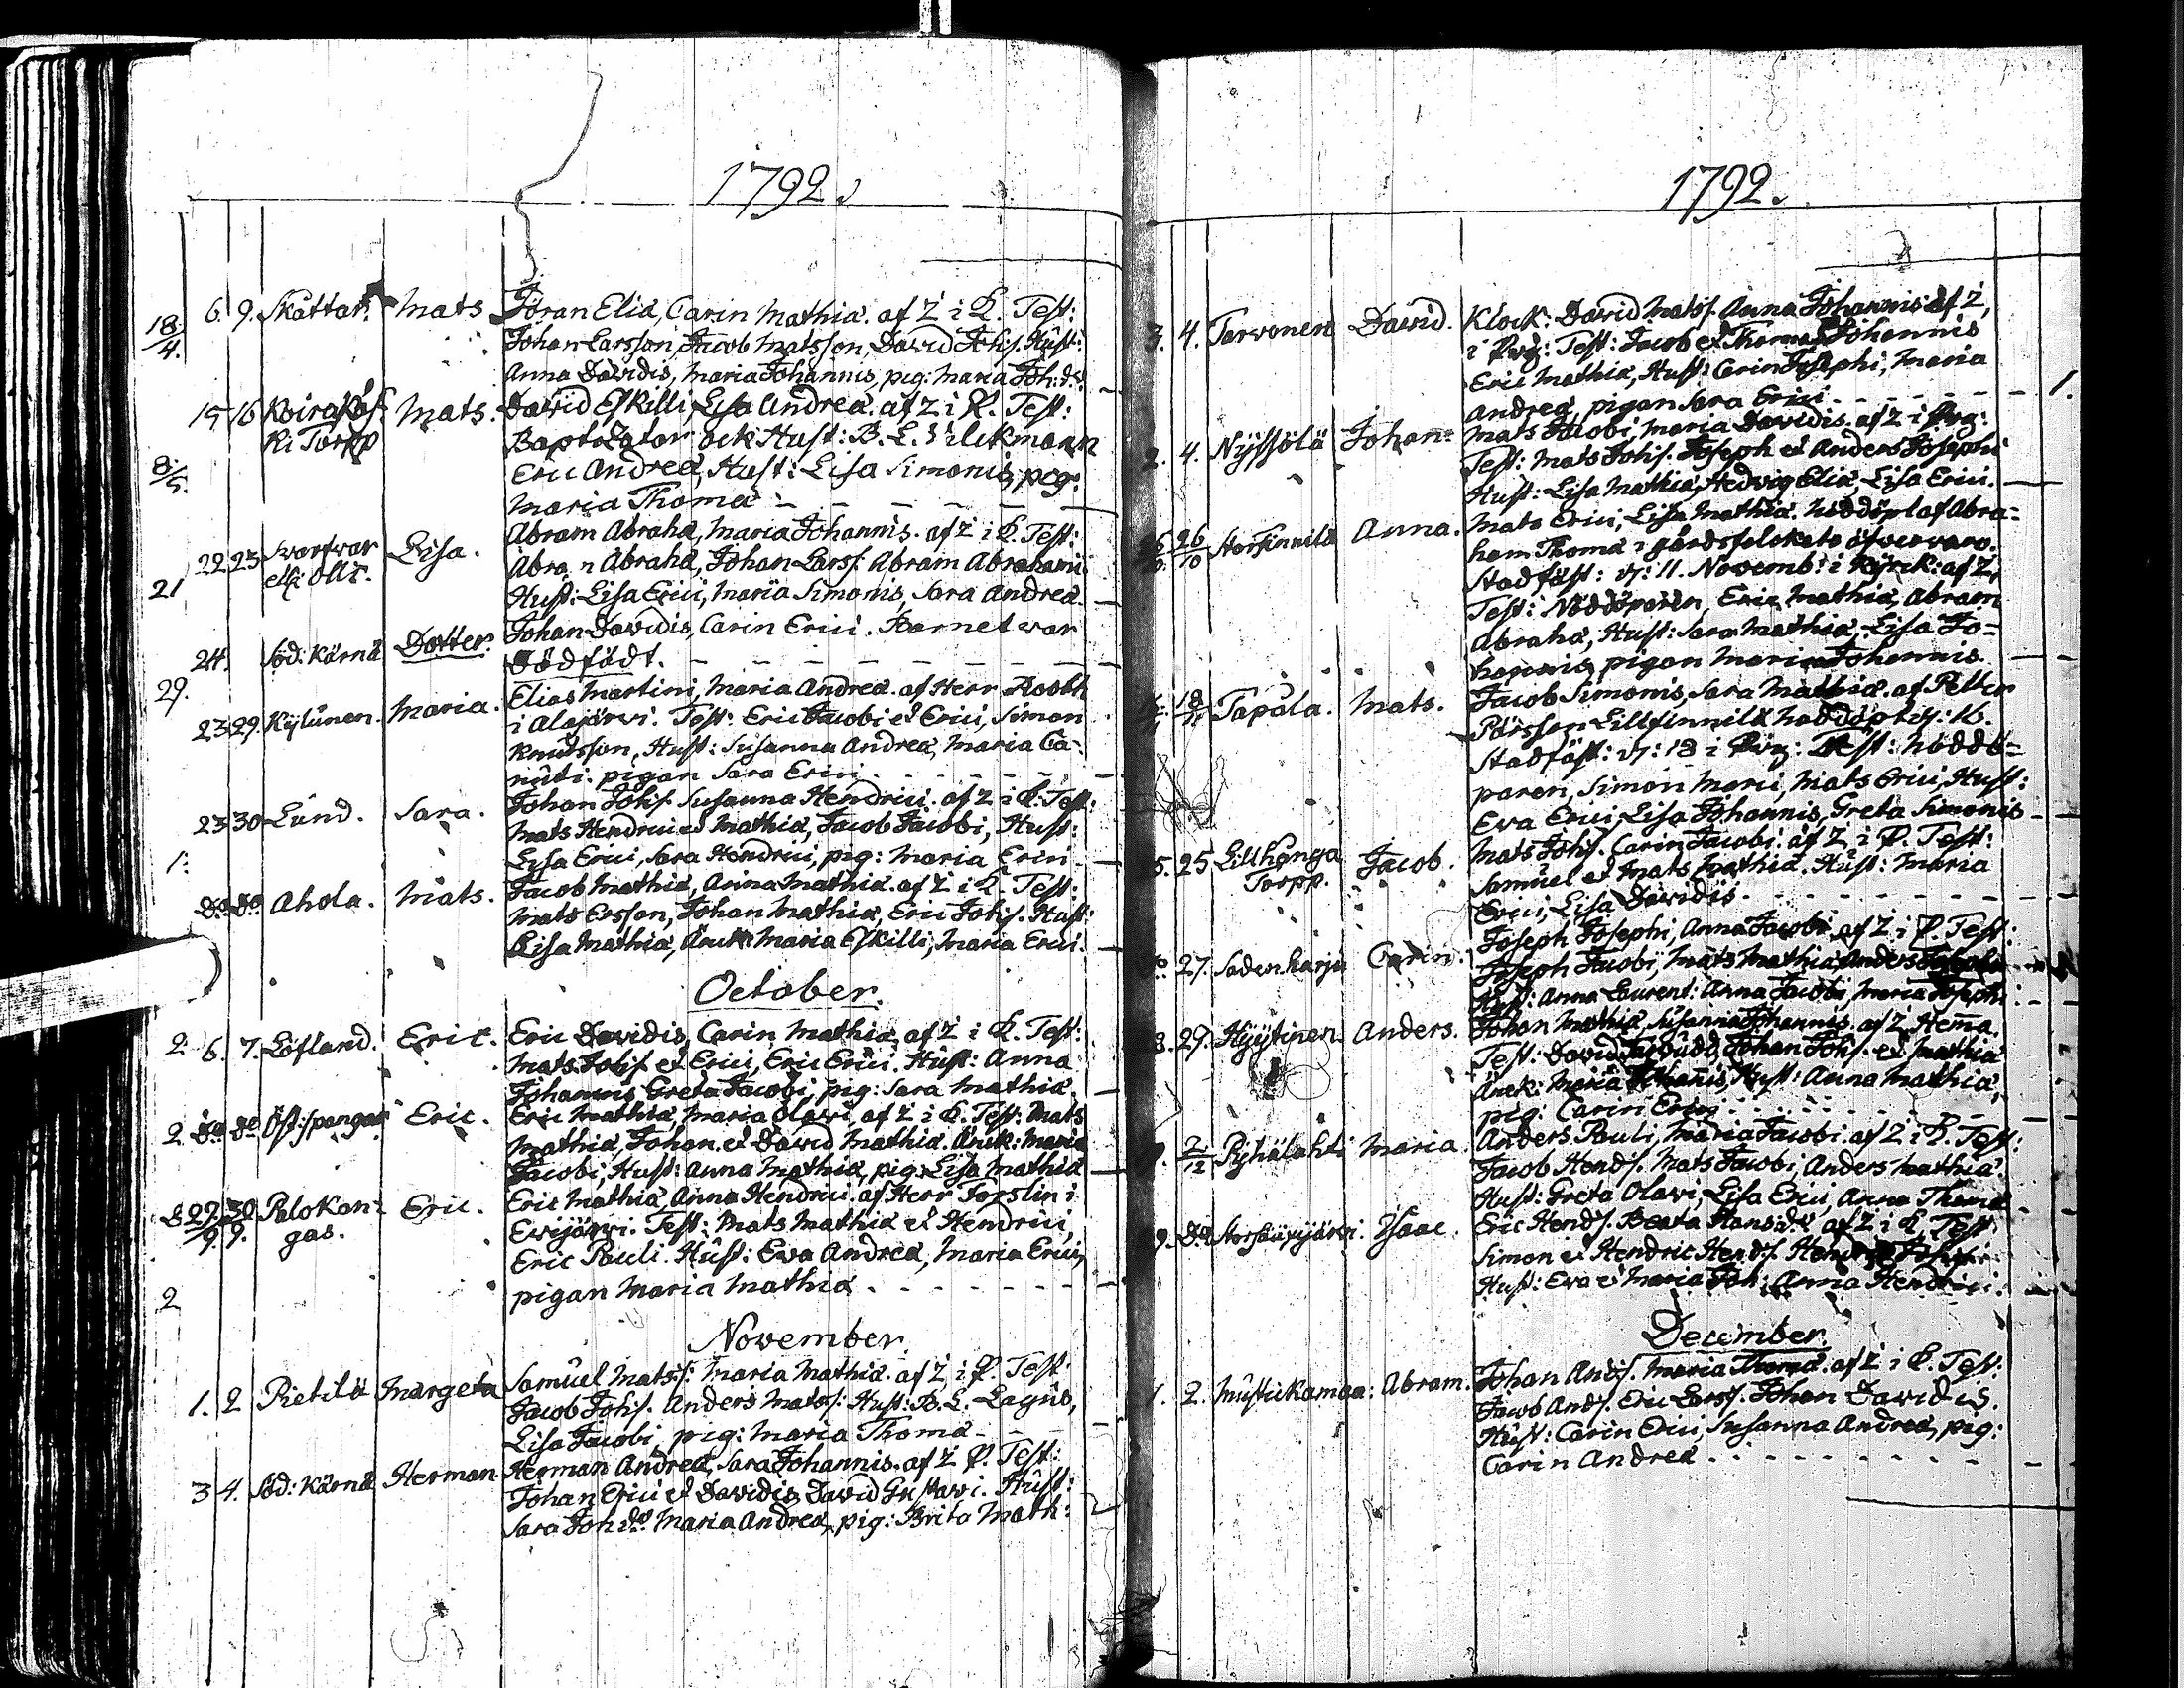 1792.
18/4. 6. 9. Skåttar. Mats Jöran Eliæ, Carin Mathiæ. af Z i K. Test:
Johan Larsson, Jacob Matsson, David Johs. Hust:
Anna Davidis, Maria Johannis, pig: Maria Joh: dr.
15 16 Koirakos- Mats. David Eskilli, Lisa Andreæ. af Z i K. Test:
ki Torpp Baptizator ock Hust: B. L.
8/5. Eric Andreæ, Hust: Lisa Simonis, pig:
Maria Thomæ
22 23 Lisa. Abram Abrahæ, Maria Johannis. af Z i K. Test:
21 Abram Abrahæ, Johan Larss. Abram Abrahami
Hust: Lisa Erici, Maria Simonis, Sara Andreæ.
24. Söd: Kärnä Dotter. Johan Davidis, Carin Erici. Barnet war
Dödfödt.
29. 23 29. Kylänen. Maria. Elias Martini, Maria Andreæ. af Herr
i Alajärvi. Test: Eric Jacobi et Erici, Simon
Knutsson, Hust: Susanna Andreæ, Maria Ca-
nuti. pigan Sara Erici
23 30 Lund. Sara. Johan Johs. Susanna Hendrici. af Z i K. Test:
Mats Hendrici et Mathiæ, Jacob Jacobi, Hust:
1: Lisa Erici, Sara Hendrici, pig: Maria Erici
do do Ahola. Mats. Jacob Mathiæ, Anna Mathiæ. af Z i K. Test:
Mats Ersson, Johan Mathiæ, Eric Johs. Hust:
Lisa Mathiæ, Änk: Maria Eskilli, Maria Erici.
October.
2 6. 7. Löfland. Eric. Eric Davidis, Carin Mathiæ, af Z i K. Test:
Mats Johs. et Erici, Eric Erici. Hust: Anna
Johannis, Greta Jacobi, pig: Sara Mathiæ
2. do do Öst: spangar Eric. Eric Mathiæ, Maria Olavi, af Z i K. Test: Mats
Mathiæ, Johan et David Mathiæ. Änk: Maria
Jacobi, Hust: Anna Mathiæ, pig: Lisa Mathiæ
29/9. 30/9. Palokan- Eric. Eric Mathiæ, Anna Hendrici. af Herr Forslin i
gas. Evijärvi. Test: Mats Mathiæ et Hendrici,
Eric Pauli. Hust: Eva Andreæ, Maria Erici,
2 pigan Maria Mathiæ
November.
1. 2 Pietilä Margeta Samuel Mats: Maria Mathiæ. af Z i K. Test:
Jacob Johs. Anders Mats: Hust: B. L. Lagus,
Lisa Jacobi, pig: Maria Thomæ
3 4. Söd: Kärnä Herman Herman Andreæ, Sara Johannis. af Z K. Test:
Johan Erici et Davidis, David Gustavi. Hust:
Sara Joh do. Maria Andreæ, pig: Brita Math:
1792.
3. 4. Torvonen David. Klock: David Mats. Anna Johannis af Z,
i Prg: Test: Jacob et Thomas Johannis
Eric Mathiæ, Hust: Carin Josephi, Maria
Andreæ, pigan Sara Erici 1.
2. 4. Nyssölä Johan. Mats Jacobi, Maria Davidis. af Z i Prg:
Test: Mats Johs. Joseph et Anders Josephi
Hust: Lisa Mathiæ, Hedvig Eliæ, Lisa Erici.
26/10 Storfinnilä Anna. Mats Erici, Lisa Mathiæ. Nöddöpt af Abra-
ham Thomæ i gårdsfolckets öfvervaro.
Stadfäst: d: 11. Novemb: i Kyrck: af Z,
Test: Nöddöparen, Eric Mathiæ, Abram
Abrahæ, Hust: Sara Mathiæ, Lisa Jo-
hannis, pigan Maria Johannis
18/11 Tapola. Mats. Jacob Simonis, Sara Mathiæ. af Petter
Pärsson Lillfinnilä nöddöpt d: 16.
Stadfäst: d: 18 i Prg: Test: Nöddö-
paren, Simon Marci, Mats Erici, Hust:
Eva Erici, Lisa Johannis, Greta Simonis
5. 25 Lillhånga Jacob. Mats Johs. Carin Jacobi. af Z i K. Test:
Torpp. Samuel et Mats Mathiæ. Hust: Maria
Erici, Lisa Davidis.
27. Sadenharju Carin. Joseph Josephi, Anna Jacobi af Z i K. Test:
Joseph Jacobi, Mats Mathiæ, Anders
Hust: Anna Laurent: Anna Jacobi, Maria Josephi
8. 29. Hyytinen Anders. Johan Mathiæ, Susanna Johannis. af Z Hema.
Test: David Johan Johs. et Mathiæ
Änck: Maria Johannis, Hust: Anna Mathiæ,
pig: Carin Erici
2/12 Pyhälahti Maria. Anders Pauli, Maria Jacobi. af Z i K. Test:
Jacob Hends. Mats Jacobi, Anders Mathiæ.
Hust: Greta Olavi, Lisa Erici, Anna Thomæ
9. do Isaac. Eric Hends. Beata Hans: dr. af Z i K. Test:
Simon et Hendric Hends.
Hust: Eva et Maria Joh: Anna Hendrici.
December.
1. 2. Mustickamaa: Abram. Johan Ands. Maria Thomæ. af Z i K. Test:
Jacob Ands. Eric Larss. Johan Davidis.
Hust: Carin Erici, Susanna Andreæ, pig:
Carin Andreæ